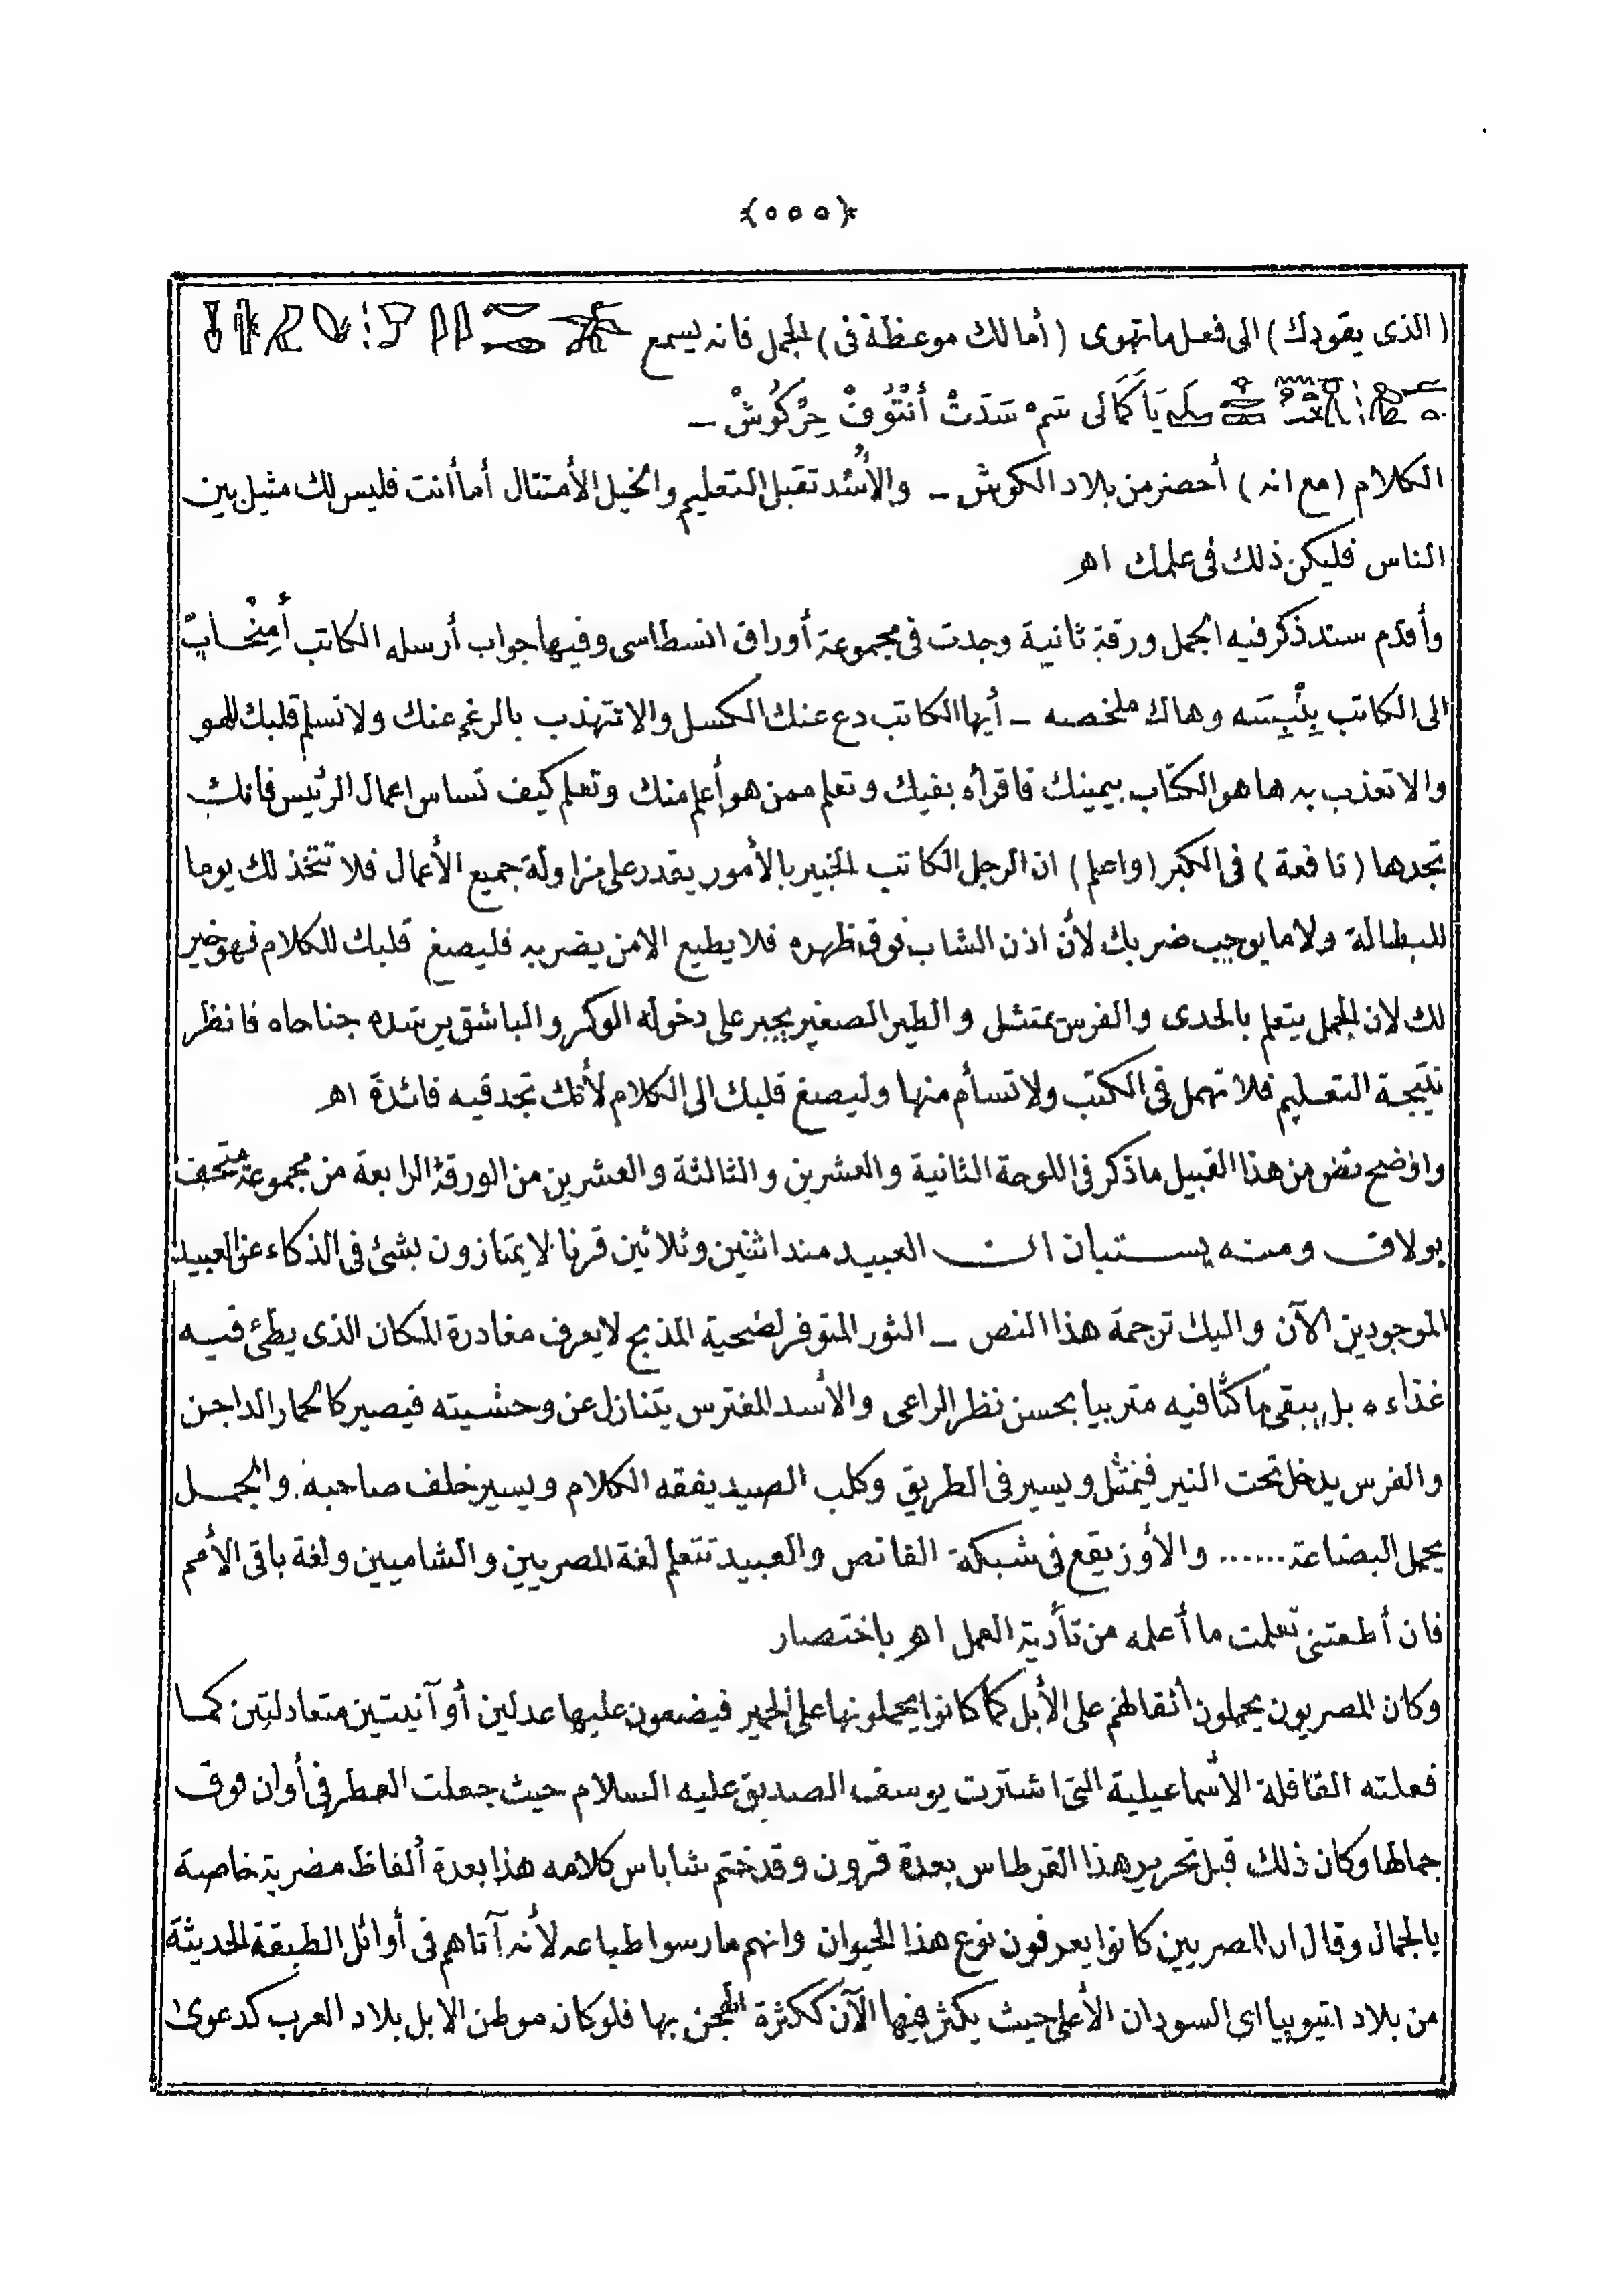 ﴿٥٥٥﴾
(الذى يقودك) الى فعل ماتهوى (أمالك موعظة فى) الجمل فانه يسمع
يَا كَمَالى سَمْ سَدَتْ أَنْتُوُفْ حِرْكُوشْ —
الكلام (مع انه) أحضر من بلاد الكوش — والأُسُد تقبل التعليم والخيل الأمتثال أما أنت فليس لك مثيل بين
الناس فليكن ذلك فى علمك اه
وأقدم سند ذكر فيه الجمل ورقة ثانية وجدت فى مجموعة أوراق انسطاسى وفيها جواب أرسله الكاتب أَمِنْحَابْ
الى الكاتب بِنْبِسَه وهاك ملخصه — أيها الكاتب دع عنك الكسل والا تتهذب بالرغم عنك ولا تسلم قلبك للهو
والا تعذب به ها هو الكتاب بيمينك فاقرأه بفيك وتعلم ممن هو أعلم منك وتعلم كيف تساس اعمال الرئيس فانك
تجدها (نافعة) فى الكبر (واعلم) ان الرجل الكاتب الخبير بالأمور يقدر على مزاولة جميع الأعمال فلا تتخذ لك يوما
للبطالة ولا ما يوجب ضربك لأن اذن الشاب فوق ظهره فلا يطيع الا من يضربه فليصغ قلبك للكلام فهو خير
لك لان الجمل يتعلم بالحدى والفرس يمتثل والطير الصغير يجبر على دخوله الوكر والباشق يرشده جناحاه فانظر
نتيجة التعليم فلا تهمل فى الكتب ولا تسأم منها وليصغ قلبك الى الكلام لأنك تجد فيه فائدة اه
واوضح نص من هذا القبيل ماذكر فى اللوحة الثانية والعشرين والثالثة والعشرين من الورقة الرابعة من مجموعة متحف
بولاق ومنه يستبان ان العبيد منذ اثنين وثلاثين قرنا لا يمتازون بشئ فى الذكاء عن العبيد
الموجودين الآن واليك ترجمة هذا النص — الثور المتوفر لضحية المذبح لا يعرف مغادرة المكان الذى يطئ فيه
غذاءه بل يبقى ماكثا فيه متربيا بحسن نظر الراعى والأسد المفترس يتنازل عن وحشيته فيصير كالحمار الداجن
والفرس يدخل تحت النير فيمتثل ويسير فى الطريق وكلب الصيد يفقه الكلام ويسير خلف صاحبه والجمل
يحمل البضاعة...... والأوز يقع فى شبكة القانص والعبيد تتعلم لغة المصريين والشاميين ولغة باقى الأمم
فان أطعتنى تعلمت ما أعلمه من تأدية العمل اه باختصار
وكان المصريون يحملون أثقالهم على الأبل كما كانوا يحملونها على الحمير فيضعون عليها عدلين أو آنيتين متعادلتين كما
فعلته القافلة الأسماعيلية التى اشترت يوسف الصديق عليه السلام حيث جعلت العطر فى أوان فوق
جمالها وكان ذلك قبل تحرير هذا القرطاس بعدة قرون وقد ختم شاباس كلامه هذا بعدة ألفاظ مصرية خاصة
بالجمال وقال ان المصريين كانوا يعرفون نوع هذا الحيوان وانهم مارسوا طباعه لأنه أتاهم فى أوائل الطبقة الحديثة
من بلاد اتيوبيا اى السودان الأعلى حيث يكثر فيها الآن ككثرة الهجن بها فلو كان موطن الابل بلاد العرب كدعوى